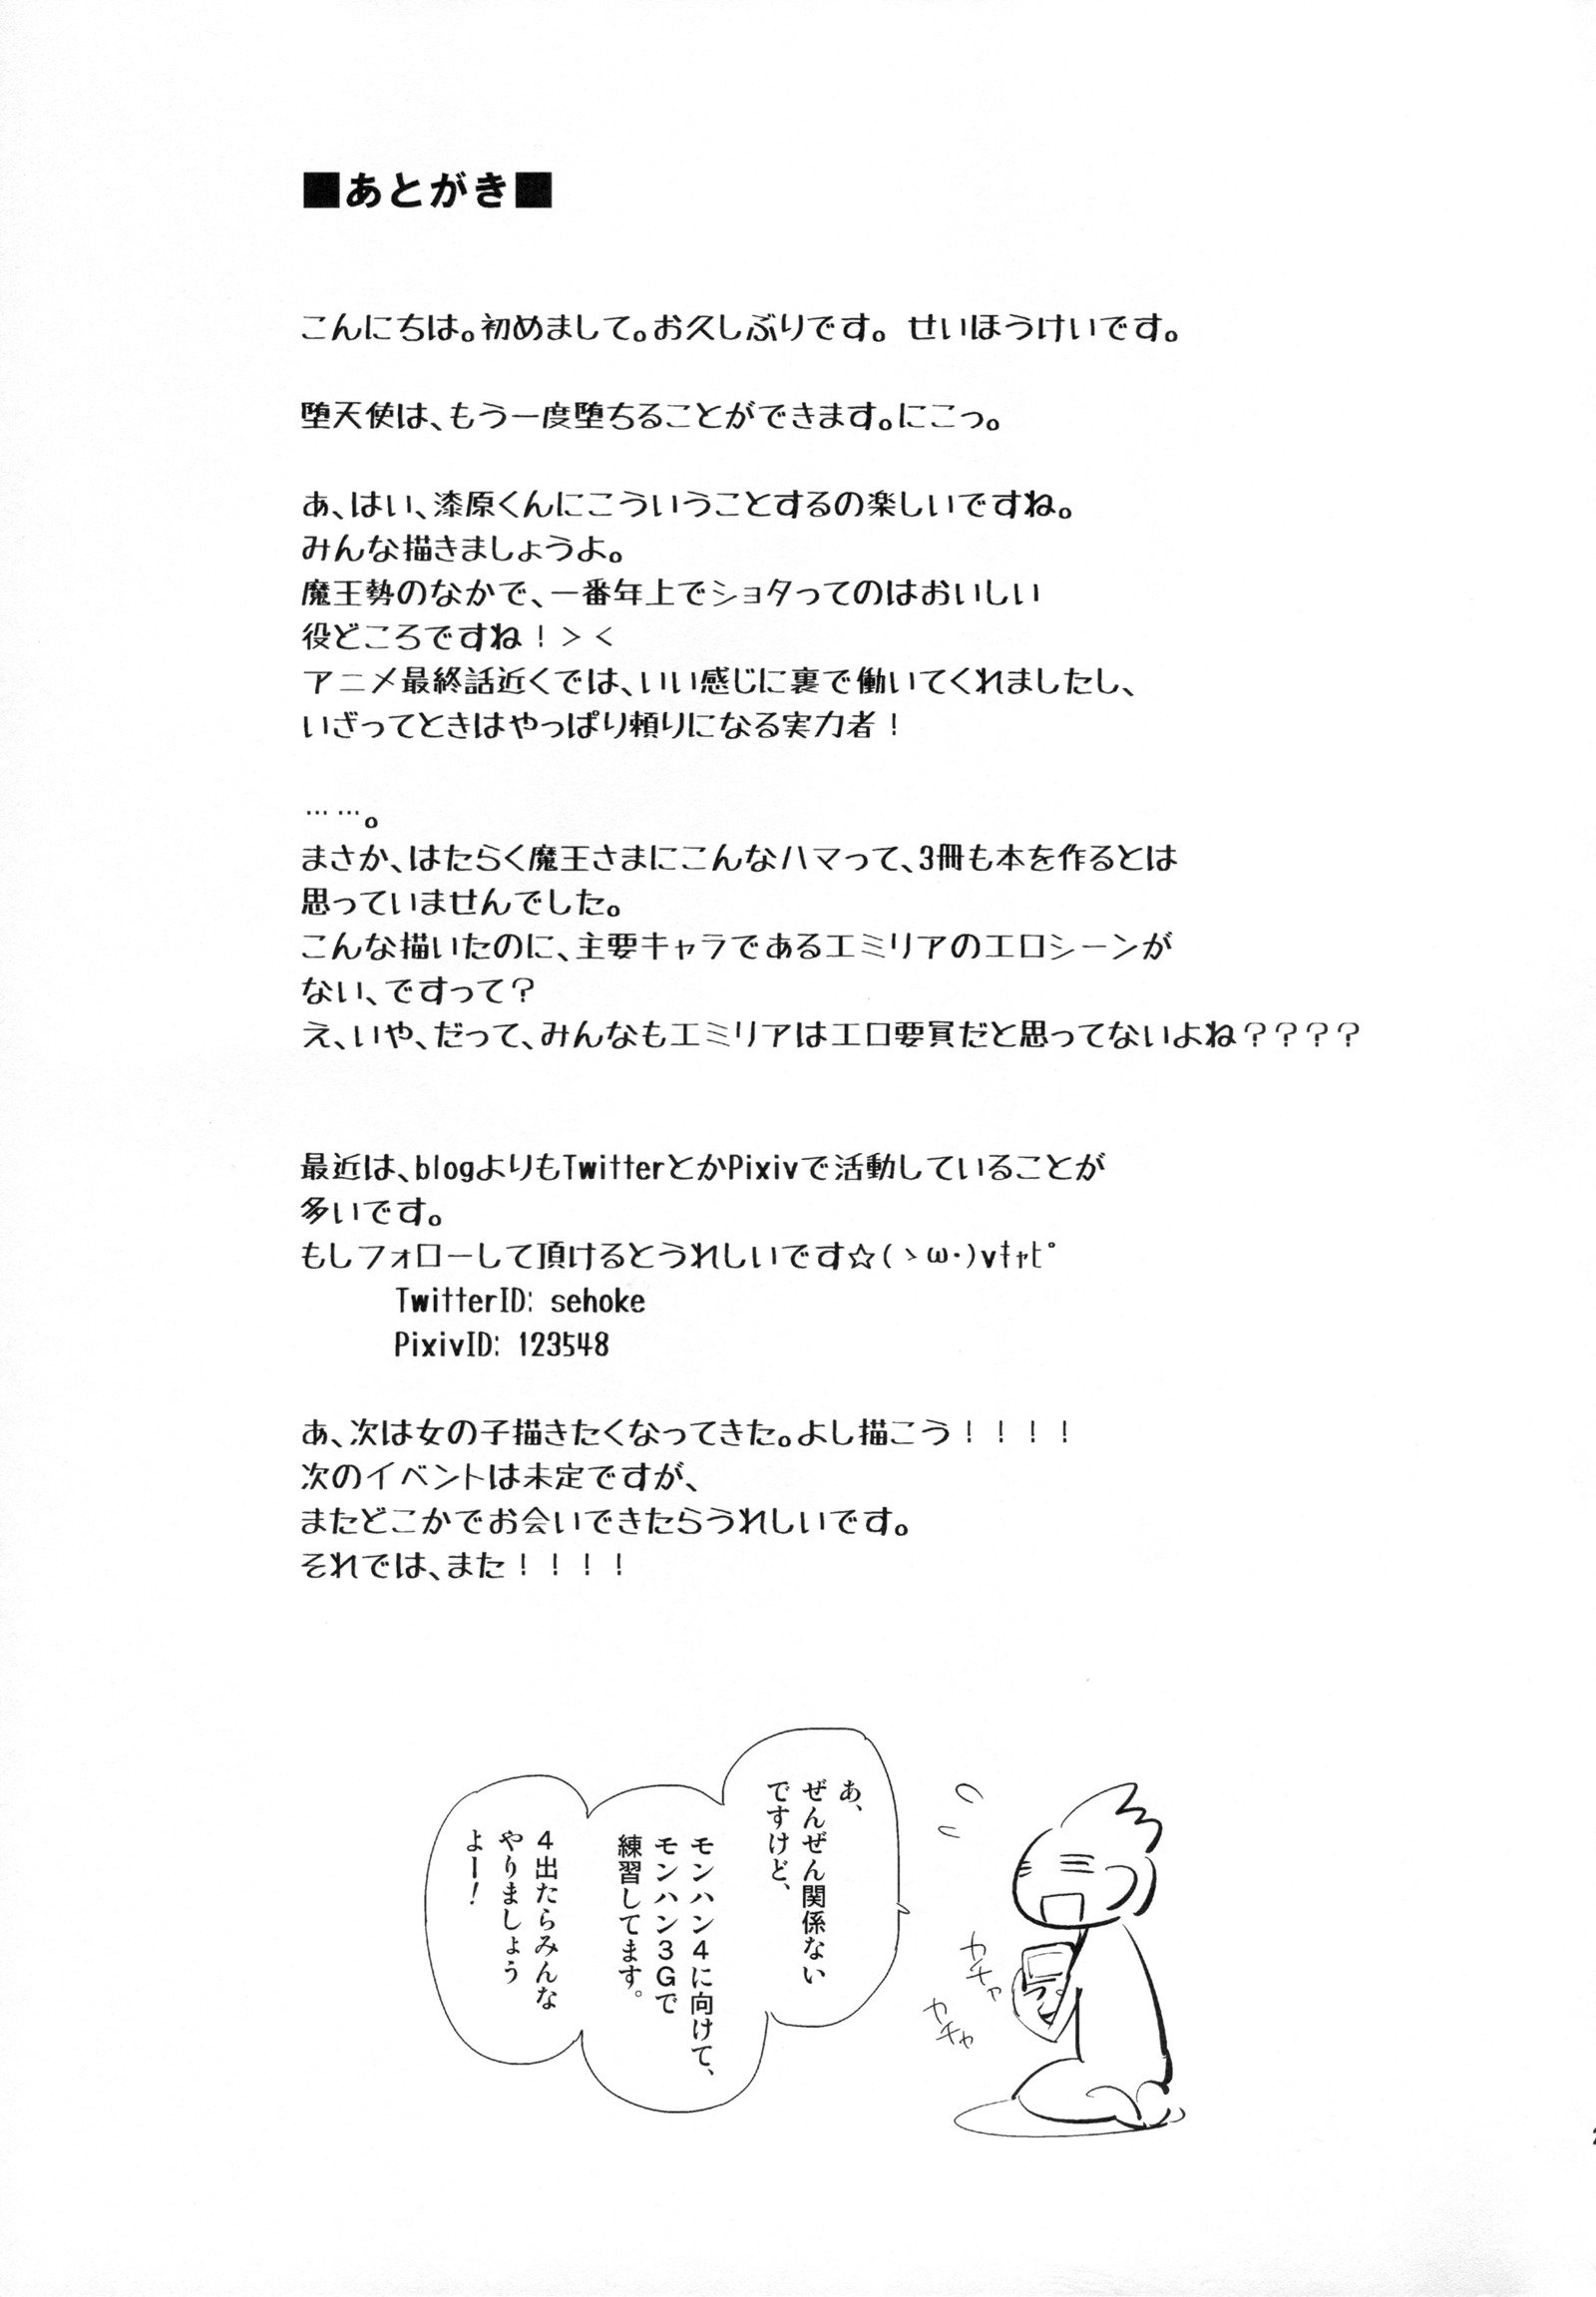 ■あとがき■
こんにちは。初めまして。お久しぶりです。 せいほうけいです。
堕天使は、もう一度堕ちることができます。にこっ。
あ、はい、漆原くんにこういうことするの楽しいですね。
みんな描きましょうよ。
魔王勢のなかで、一番年上でショタってのはおいしい
役どころですね！＞＜
アニメ最終話近くでは、いい感じに裏で働いてくれましたし、
いざってときはやっぱり頼りになる実力者！
……。
まさか、はたらく魔王さまにこんなハマって、3冊も本を作るとは
思っていませんでした。
こんな描いたのに、主要キャラであるエミリアのエロシーンが
ない、ですって？
え、いや、だって、みんなもエミリアはエロ要員だと思ってないよね？？？？
最近は、blogよりもTwitterとかPixivで活動していることが
多いです。
もしフォローして頂けるとうれしいです☆(ゝω・)vｷｬﾋﾟ
TwitterID: sehoke
PixivID: 123548
あ、次は女の子描きたくなってきた。よし描こう！！！！
次のイベントは未定ですが、
またどこかでお会いできたらうれしいです。
それでは、また！！！！
あ、
ぜんぜん関係ない
ですけど、
モンハン4に向けて、
モンハン3Gで
練習してます。
4出たらみんな
やりましょう
よー！
カチャ
カチャ